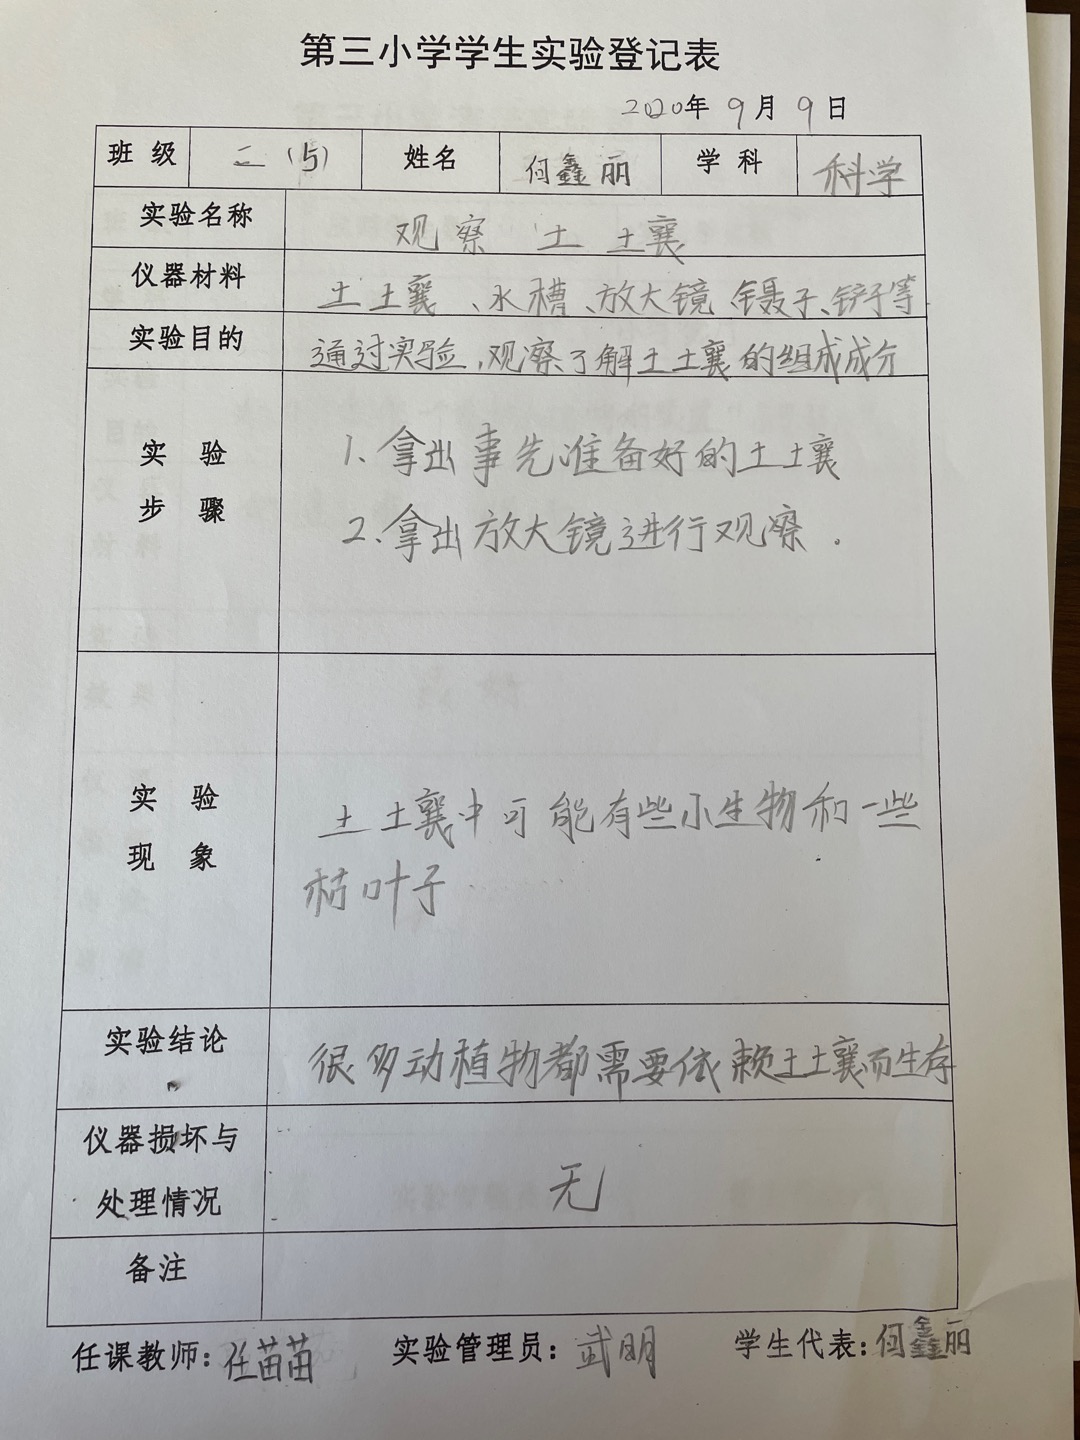 第三小学学生实验登记表
2020年 9月 9日
班 级 二（5） 姓名 何鑫丽 学 科 科学
实验名称 观察 土 土襄
仪器材料 土土襄、水槽、放大镜、镊子、铲子等
实验目的 通过实验，观察了解土土襄的组成成分
实 验
步 骤
1.拿出事先准备好的土土襄
2.拿出放大镜进行观察.
实 验
现 象
土土襄中可能有些小生物和一些
枯叶子……
实验结论 很多动植物都需要依赖土土襄而生存
仪器损坏与
处理情况
无
备注
任课教师：任苗苗 实验管理员：武明 学生代表：何鑫丽